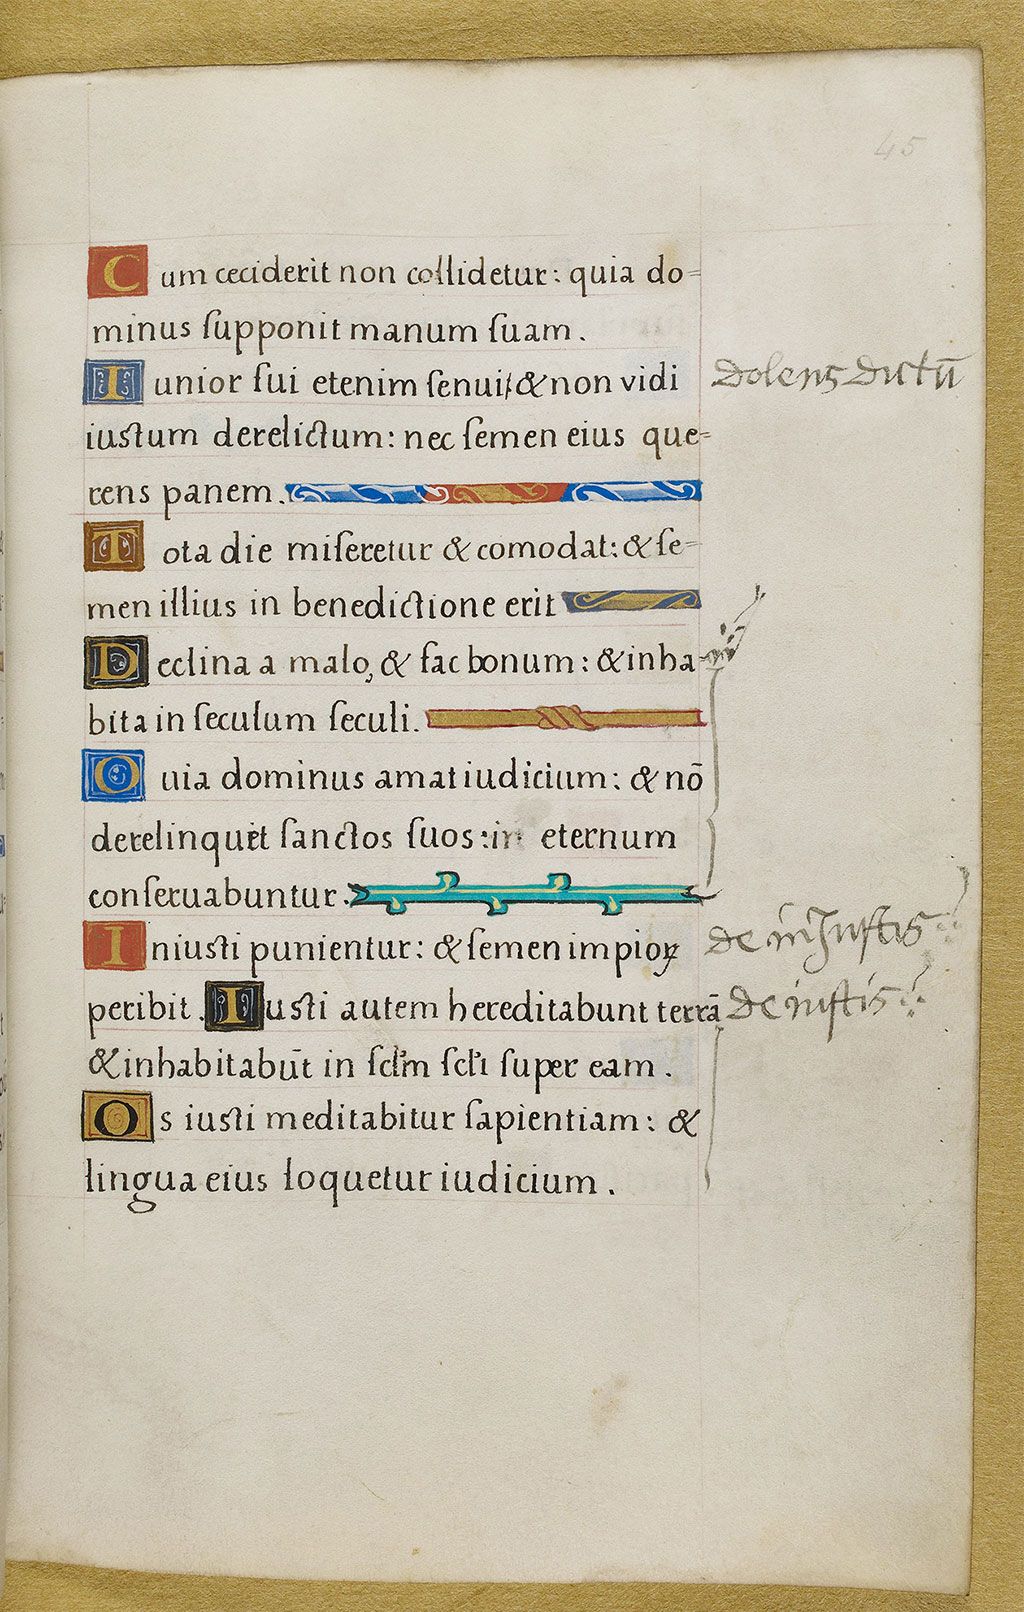 45
Cum ceciderit non collidetur: quia do=
minus ſupponit manum ſuam.
Iunior fui etenim ſenui, & non vidi dolens dictū
iustum derelictum: nec ſemen eius que=
rens panem.
Tota die miſeretur & comodat: & ſe=
men illius in benedictione erit
Declina a malo, & fac bonum: & inha
bita in ſeculum ſeculi.
Quia dominus amat iudicium: & nō
derelinquet ſanctos ſuos: in eternum
conſeruabuntur.
Iniusti punientur: & ſemen impioꝝ de inJustis
peribit. Iusti autem hereditabunt terrā de iustis
& inhabitabūt in ſcl'm ſcl'i ſuper eam.
Os iusti meditabitur ſapientiam: &
lingua eius loquetur iudicium.